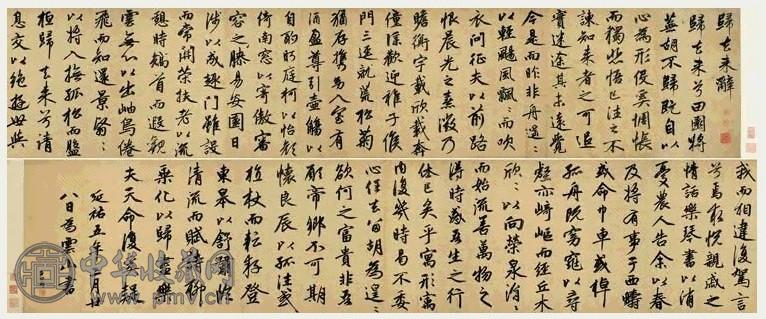 歸去來辭
歸去來兮田園將
蕪胡不歸既自以
心為形役奚惆悵
而獨悲悟已往之不
諫知來者之可追
實迷途其未遠覺
今是而昨非舟遙々
以輕颺風飄々而吹
衣問征夫以前路
恨晨光之熹微乃
瞻衡宇載欣載奔
僮僕歡迎稚子候
門三逕就荒松菊
猶存攜幼入室有
酒盈尊引壺觴以
自酌眄庭柯以怡顏
倚南窓以寄傲審
容之膝易安園日
涉以成趣門雖設
而常關策扶老以流
憩時矯首而遐觀
雲無心以出岫鳥倦
飛而知還景翳々
以將入撫孤松而盤
桓歸去來兮請
息交以絕遊世與
我而相違復駕言
兮焉求悅親戚之
情話樂琴書以消
憂農人告余以春
及將有事于西疇
或命巾車或棹
孤舟既窈窕以尋
壑亦崎嶇而經丘木
欣々以向榮泉涓々
而始流善萬物之
得時感吾生之行
休已矣乎寓形宇
內復幾時曷不委
心任去留胡為遑々
欲何之富貴非吾
願帝鄉不可期
懷良辰以孤往或
植杖而耘耔登
東皋以舒嘯臨
清流而賦詩聊
乘化以歸盡樂
夫天命復奚疑
延祐五年月廿
八日為雲山書
中华收藏网